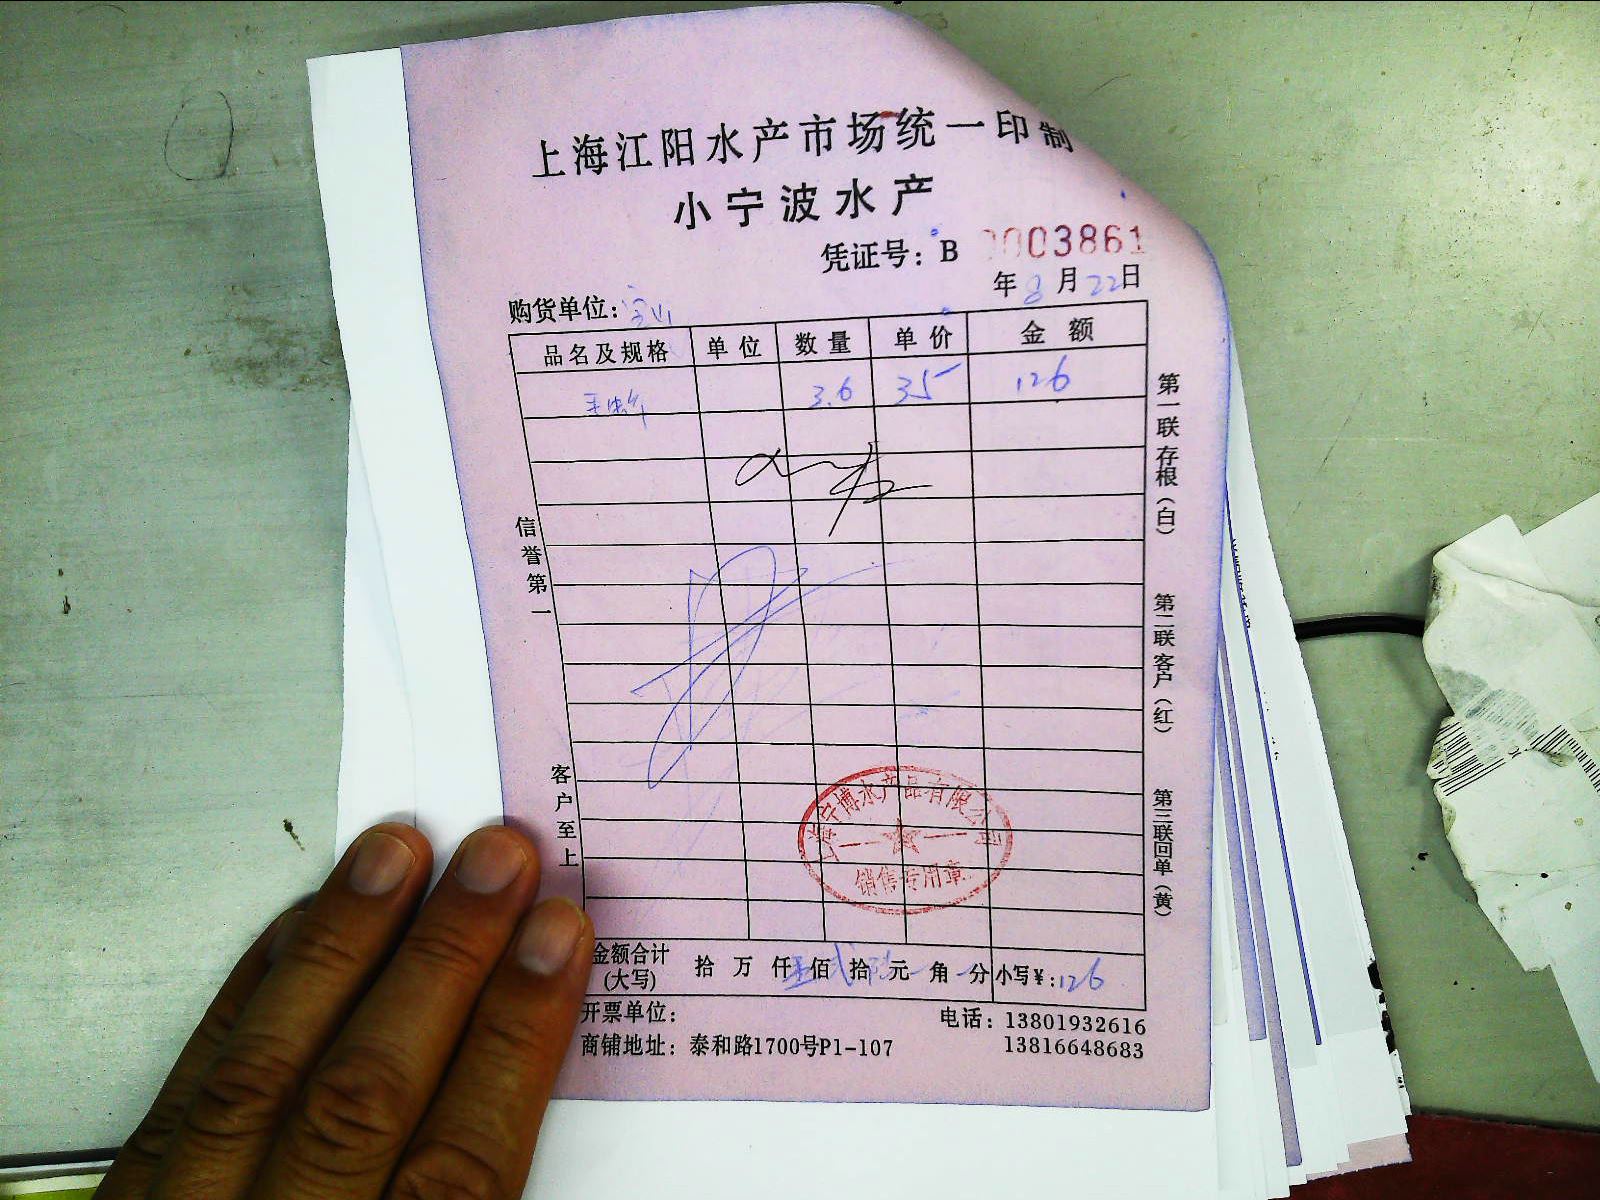 上海江阳水产市场统一印制
小宁波水产
凭证号：B 0003861
年8月22日
购货单位：宝山
品名及规格 单位 数量 单价 金额
3.6 35 126
信誉第一
客户至上
第一联存根（白）
第二联客户（红）
第三联回单（黄）
上海宁博水产品有限公司
销售专用章
金额合计（大写） 拾 万 仟 壹 佰 贰 拾 陆 元 角 分 小写￥：126
开票单位：
电话：13801932616
商铺地址：泰和路1700号P1-107
13816648683